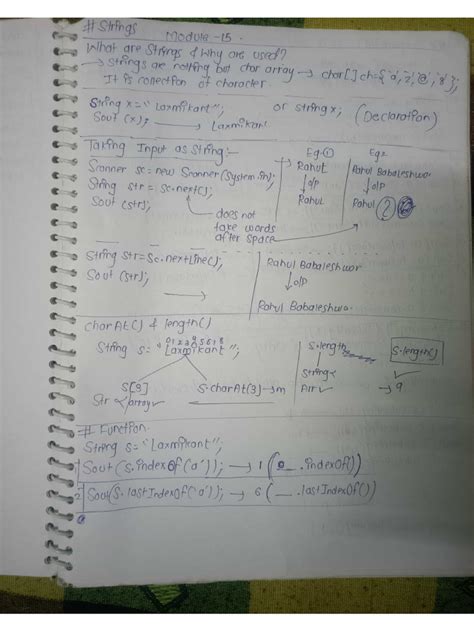 # Strings
Module-15.
What are Strings & Why are used?
→ Strings are nothing but char array → char[] ch={'a','2','@','8'};
It is conection of character.
String x="Laxmikant"; or string x; (Declaration)
Sout (x); → Laxmikant
Taking Input as String:- Eg-① Eg2
Scanner sc=new Scanner(System.in); → Rahul Rahul Babaleshwar
String str = sc.next(); ↓o/p ↓o/p
Sout (str); Rahul Rahul
does not
take words
after space
String str=Sc.nextLine(); Rahul Babaleshwar
Sout (str); → ↓o/p
Rahul Babaleshwar
charAt() & length()
0 1 2 3 4 5 6 7 8
String s="Laxmikant"; s.length s.length()
String
s[3] s.charAt(3)→m Arr ✓ → 9
Str array✓
# Function
String s="Laxmikant";
1 Sout(s.indexOf('a')); → 1 (__.indexOf())
2 Sout(s.lastIndexOf('a')); → 6 (__.lastIndexOf())